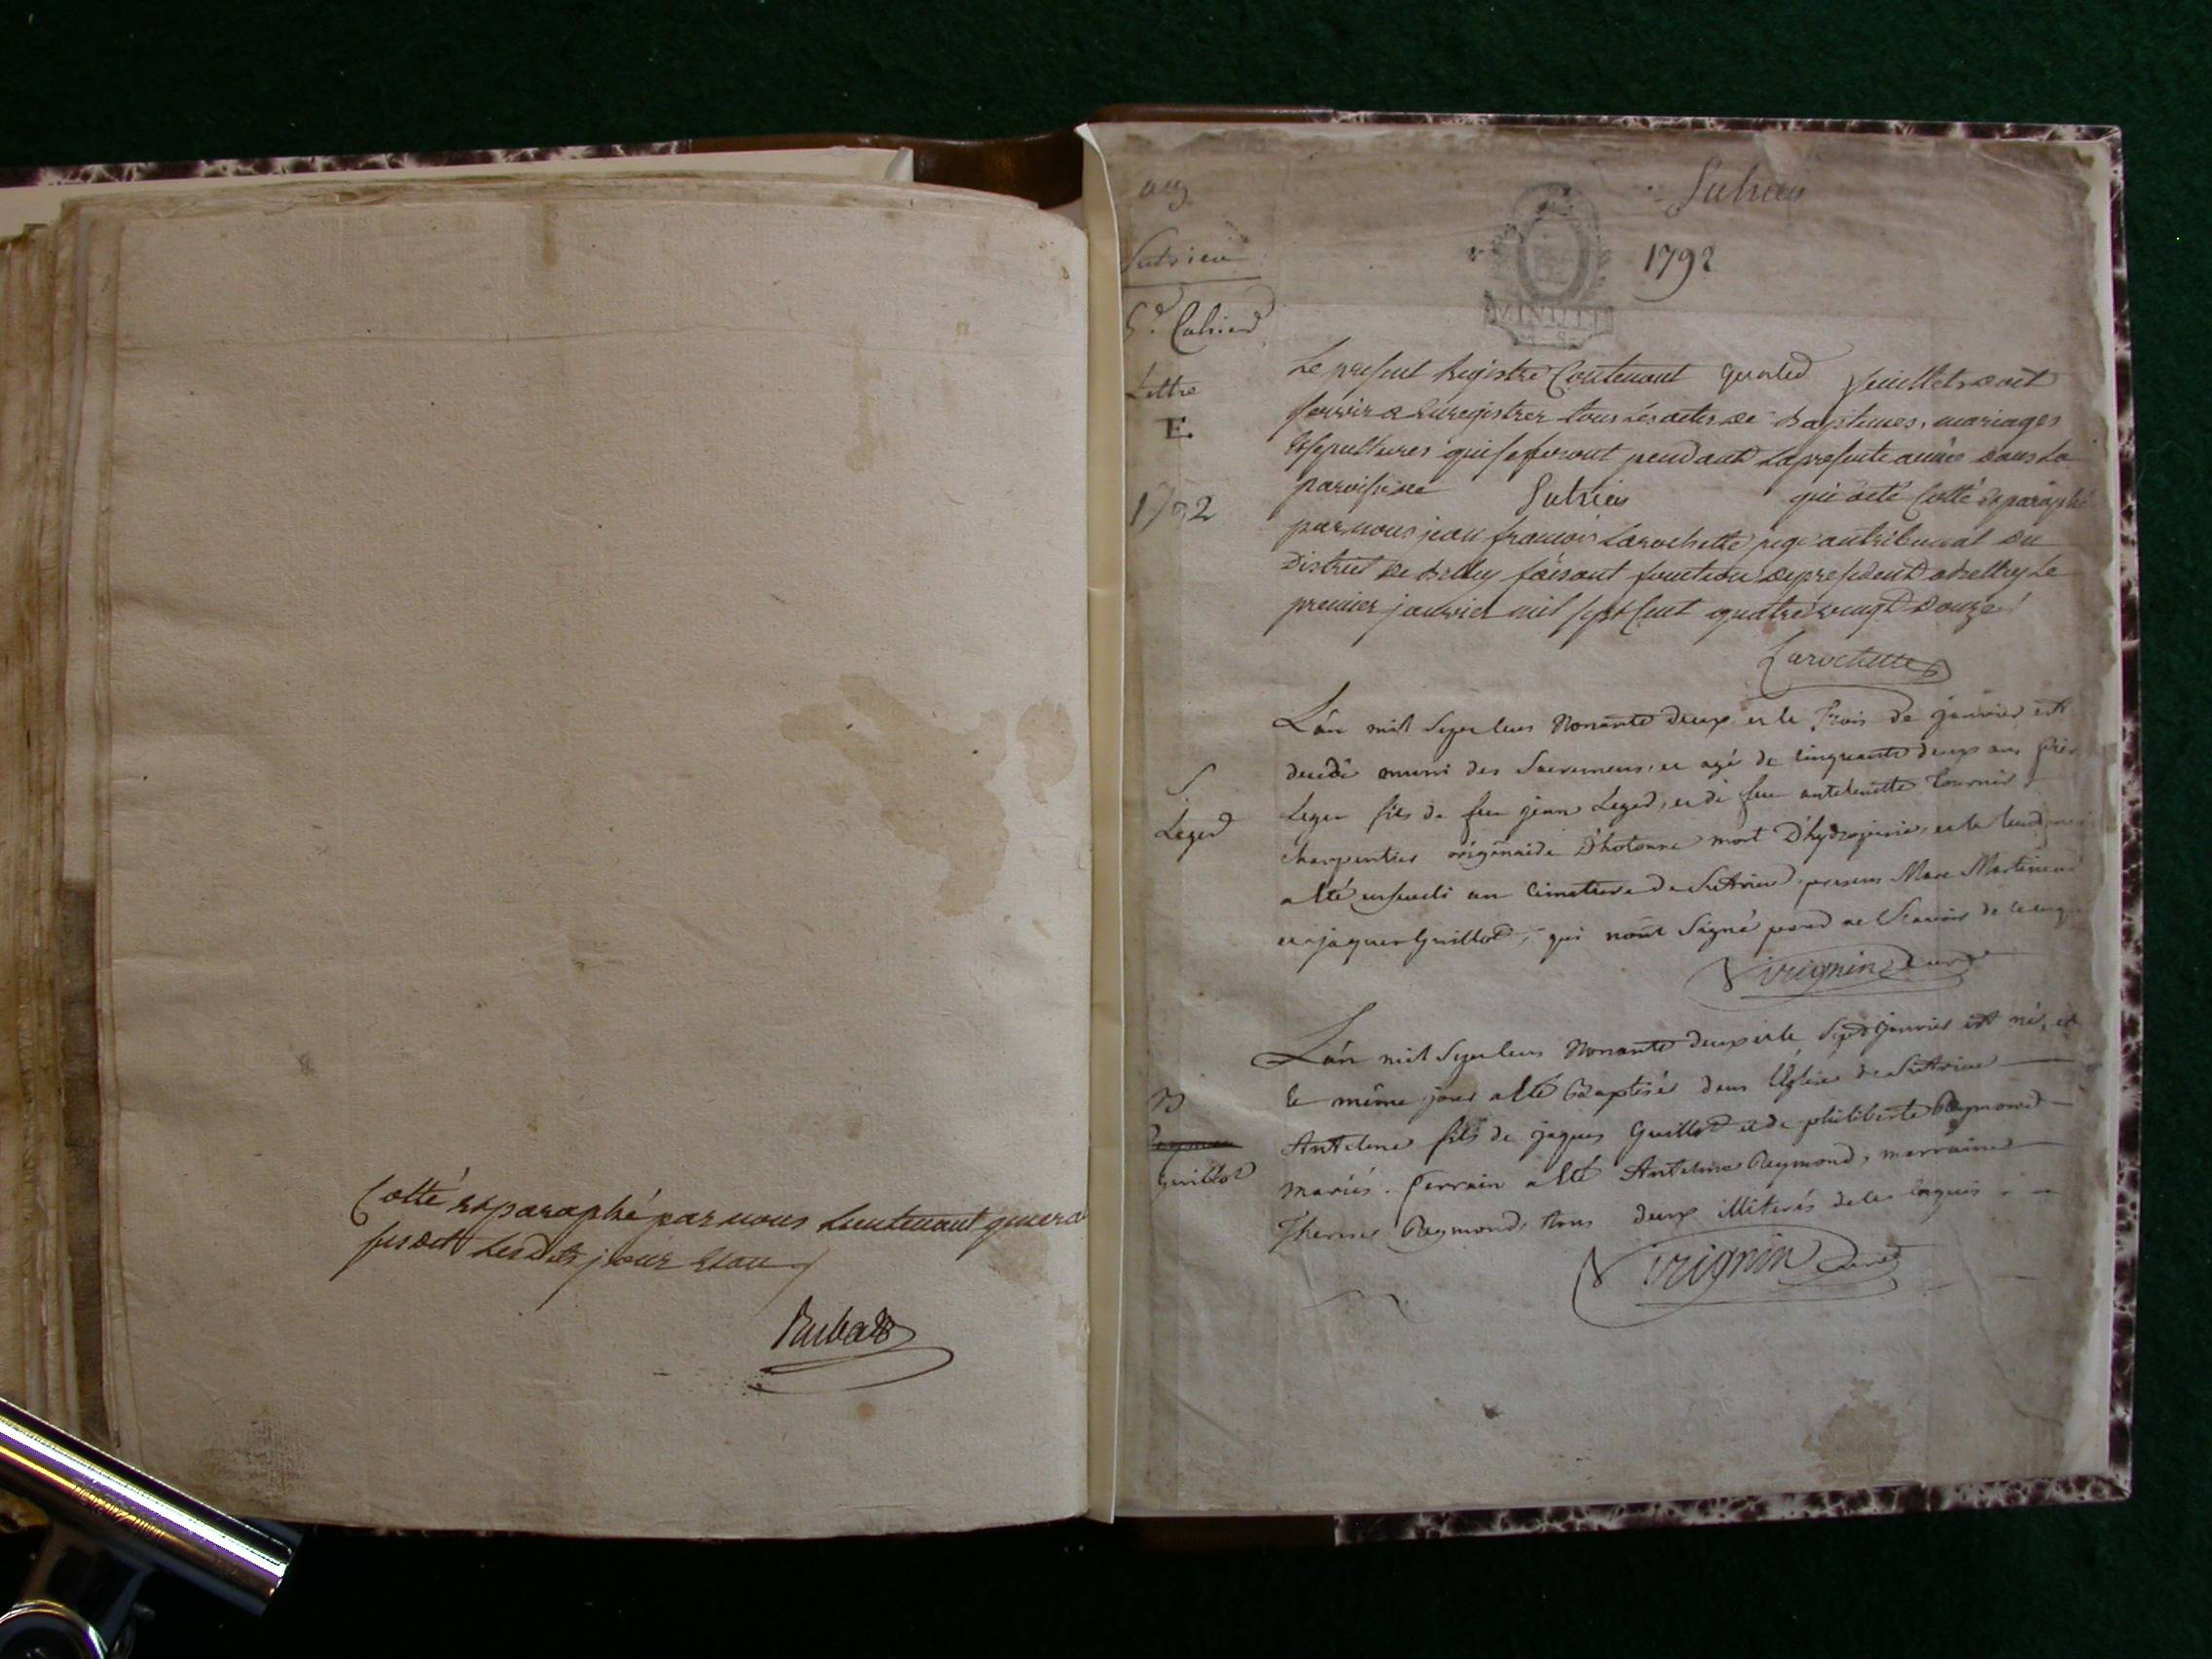 Cotté et paraphé par nous Lieutenant genera
susdit Lesdits jour et an
Sutrieu
1792
Sutrieu
5e. Cahier
Lettre
E.
1792
MINUTE
Le present Registre Contenant quatre feuillets doit
servir a Enregistrer tous Les actes de Baptemes, mariages
Et sepultures qui se feront pendant La presente année dans La
paroisse de Sutrieu qui a eté Cotté et paraphé
par nous jean francois Larochette juge au tribunal du
District de Belley faisant fonction de president a Belley Le
premier janvier mil sept Cent quatre vingt douze
Larochette
L'an mil Sept Cens Nonante deux et le Trois de janvier est
decedé muni des Sacremens, et agé de Cinquante deux ans
Leger fils de feu jean Leger, et de feu anthelmette
Charpentier originaire D'hotonne mort D'hydropisie, et le
a Eté enseveli au Cimetiere de Sutrieu, presens Marc
et jaques Guillot, qui n'ont Signé pour ne Scavoir de ce enquis
Virignin Curé
S
Leger
L'an mil Sept Cens Nonante deux et le Sept janvier est né, et
le même jour a Eté Baptisé dans L'Eglise de Sutrieu
Antelme fils de jaques Guillot et de philiberte Reymond
mariés. Parrain a Eté Antelme Reymond, marraine
Reymond, tous deux illiterés de ce enquis
Virignin Curé
B
Guillot